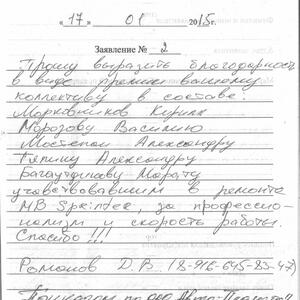 «17» 01 2015г.
Заявление № 2
Прошу выразить благодарность
в виде премии вашему
коллективу в составе:
Морковников Кирилл
Морозову Василию
Мостепан Александру
Тяпину Александру
Багаутдинову Марату
участвовавшим в ремонте
MB Sprinter, за профессио-
нализм и скорость работы.
Спасибо!!!
Романов Д.В (8-916-645-83-47)